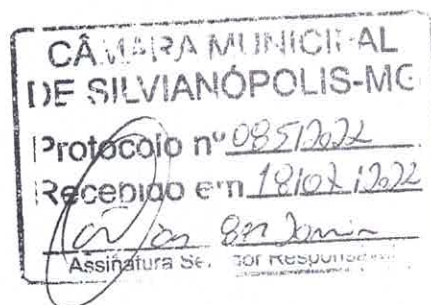 CÂMARA MUNICIPAL
DE SILVIANÓPOLIS-MG
Protocolo nº 085/2022
Recebido em 18/02/2022
Assinatura Servidor Responsável